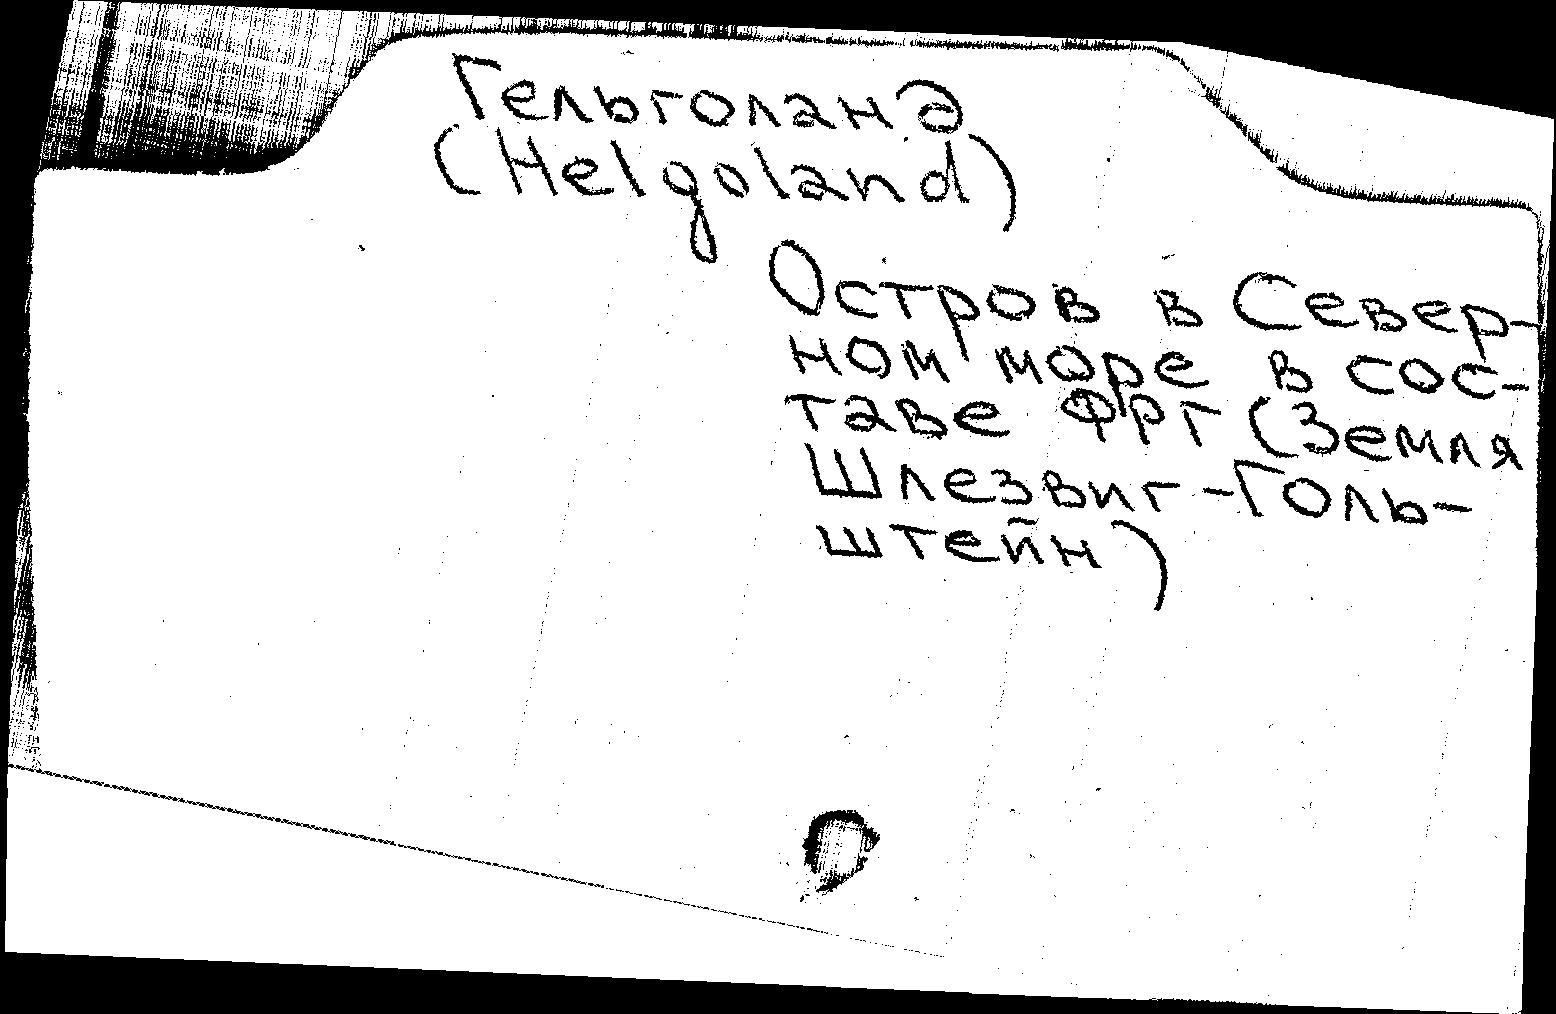 Гельголанд
(Helgoland)
Остров в Север-
ном море в сос-
таве ФРГ (Земля
Шлезвиг-Голь-
штейн)